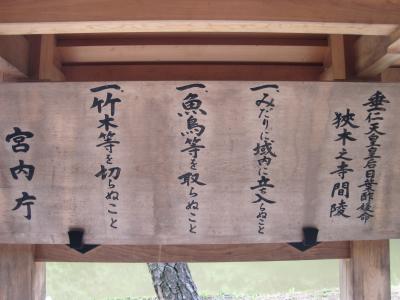 垂仁天皇皇后日葉酢媛命
狹木之寺間陵
一、みだりに域内に立ち入らぬこと
一、魚鳥等を取らぬこと
一、竹木等を切らぬこと
宮内庁